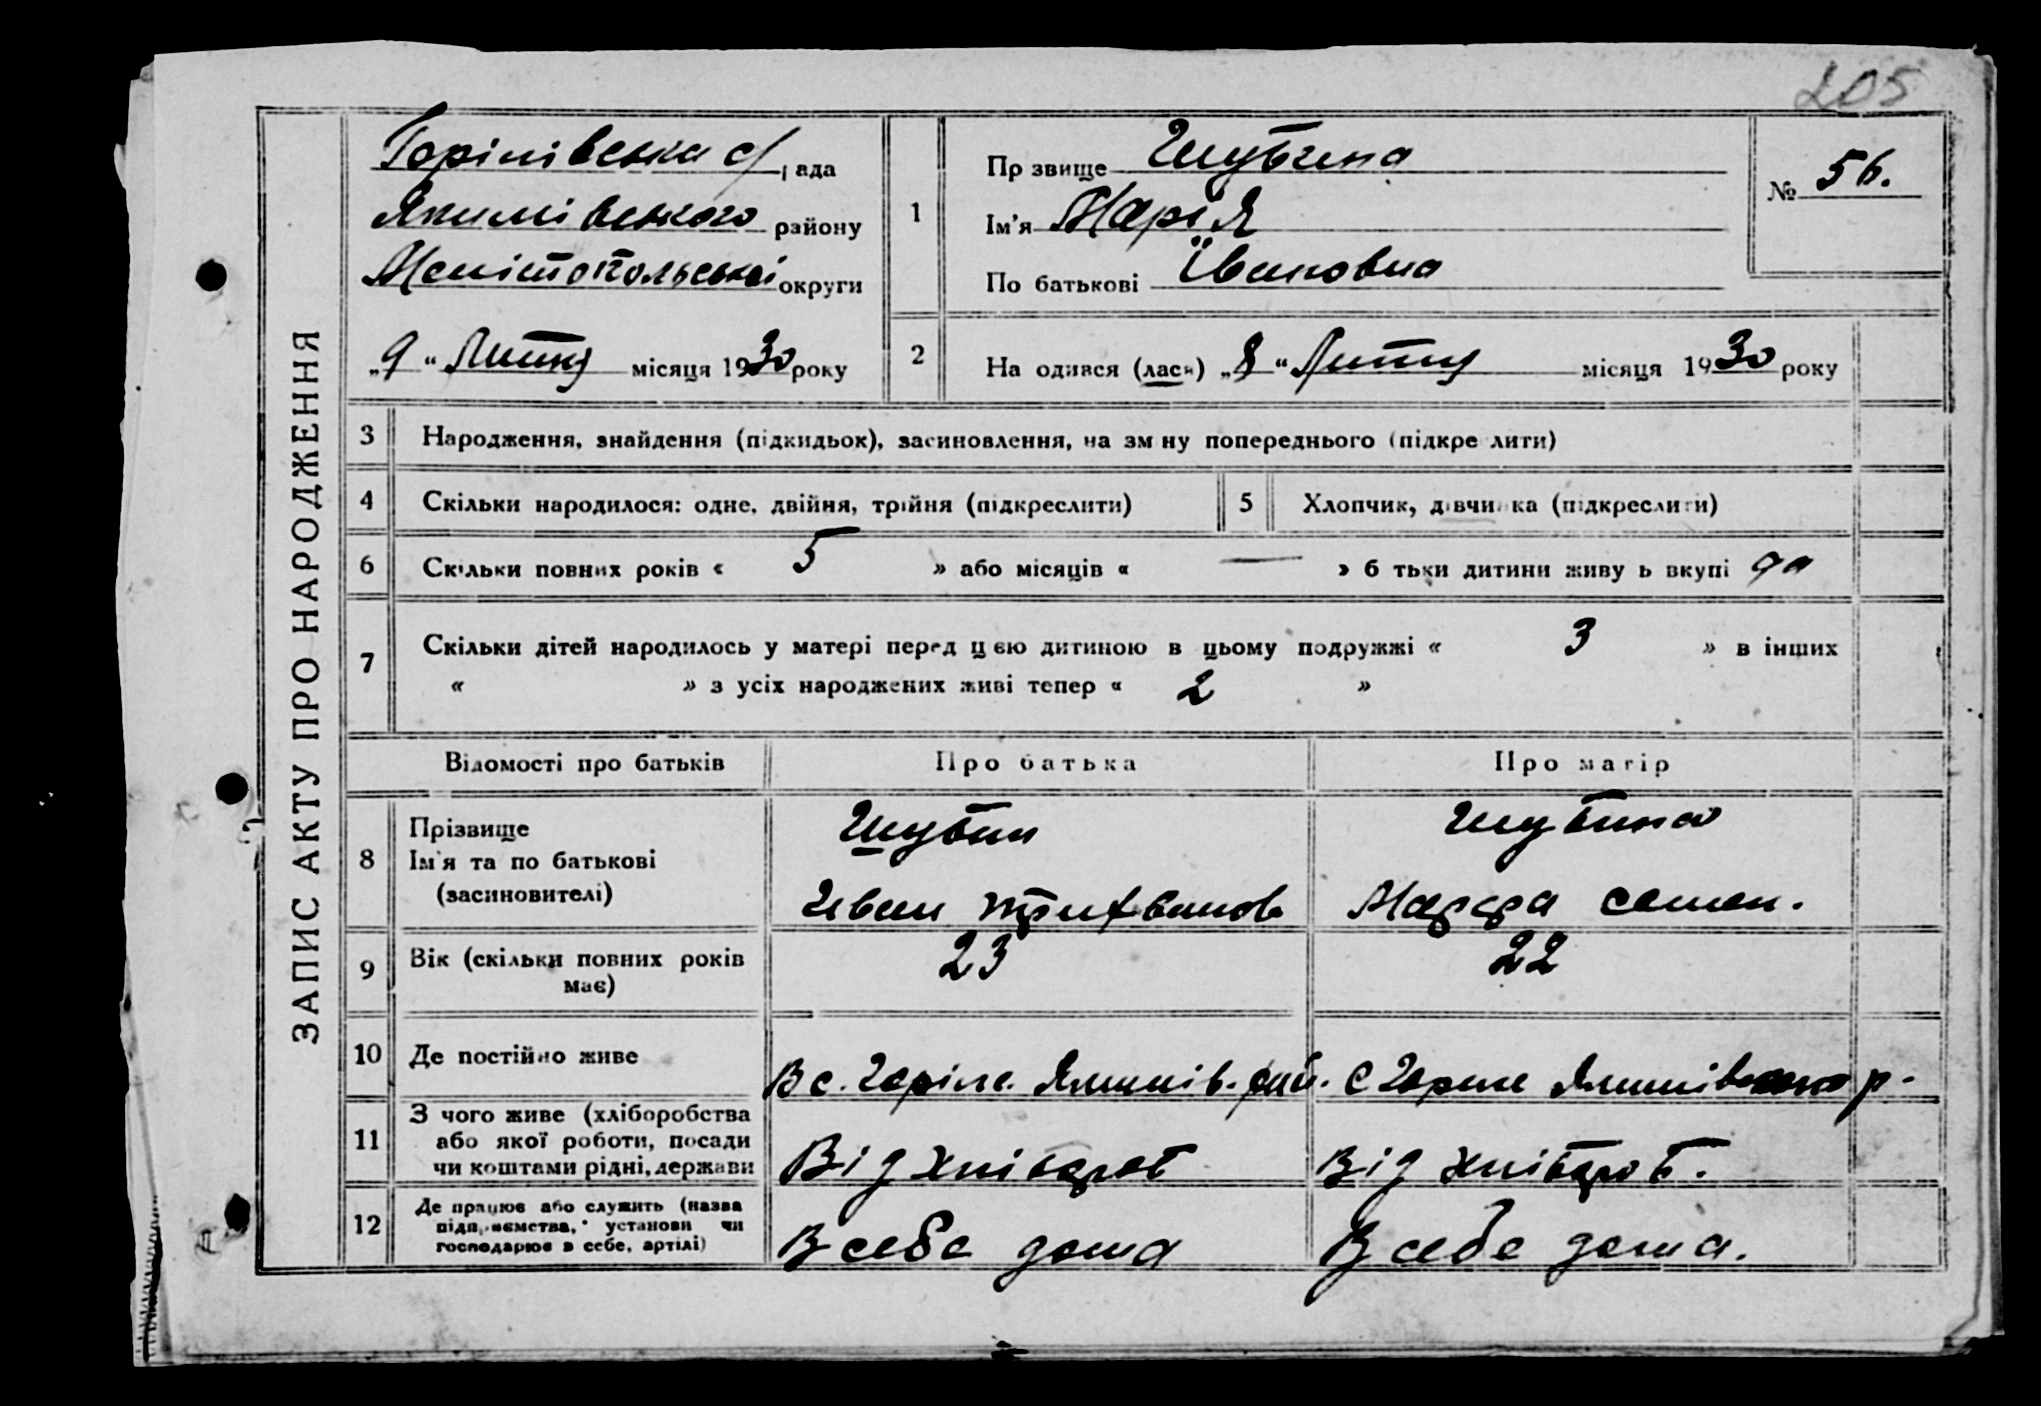 205
ЗАПИС АКТУ ПРО НАРОДЖЕННЯ
Горілівська с/рада
Якимівського району
Мелітопольської округи
„9“ Лютня місяця 1930 року
1
Прзвище Шубина
Ім'я Марія
По батькові Івановна
№ 56.
2
На одився (лась) „8“ Лютня місяця 1930 року
3 Народження, знайдення (підкидьок), засиновлення, на зм ну попереднього (підкре лити)
4 Скільки народилося: одне, двійня, трійня (підкреслити)
5 Хлопчик, дівчинка (підкреслити)
6 Скільки повних років « 5 » або місяців « — » б тьки дитини живу ь вкупі да
7 Скільки дітей народилось у матері перед цією дитиною в цьому подружжі « 3 » в інших
« » з усіх народжених живі тепер « 2 »
Відомості про батьків
Про батька
Про матір
8 Прізвище
Ім'я та по батькові
(засиновителі)
Шубин
Иван
Шубина
Семен.
9 Вік (скільки повних років
має)
23
22
10 Де постійно живе
В с. Горіле. Якимів. рай.
С Горіле Якимівського р.
11 З чого живе (хліборобства
або якої роботи, посади
чи коштами рідні, держави
Від хлібороб
Від хлібороб.
12 Де працює або служить (назва
підприємства, установи чи
господарює в себе, артілі)
В себе дома
В себе дома.